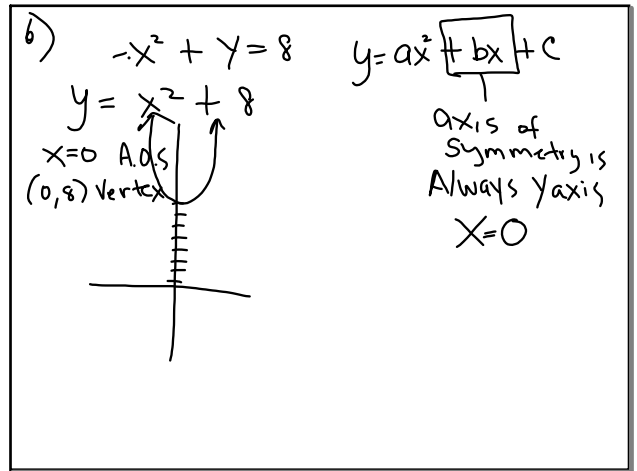 6)
-x² + y = 8
y = x² + 8
x=0 A.O.S
(0,8) Vertex
y = ax² + bx + c
axis of
symmetry is
Always y axis
x=0